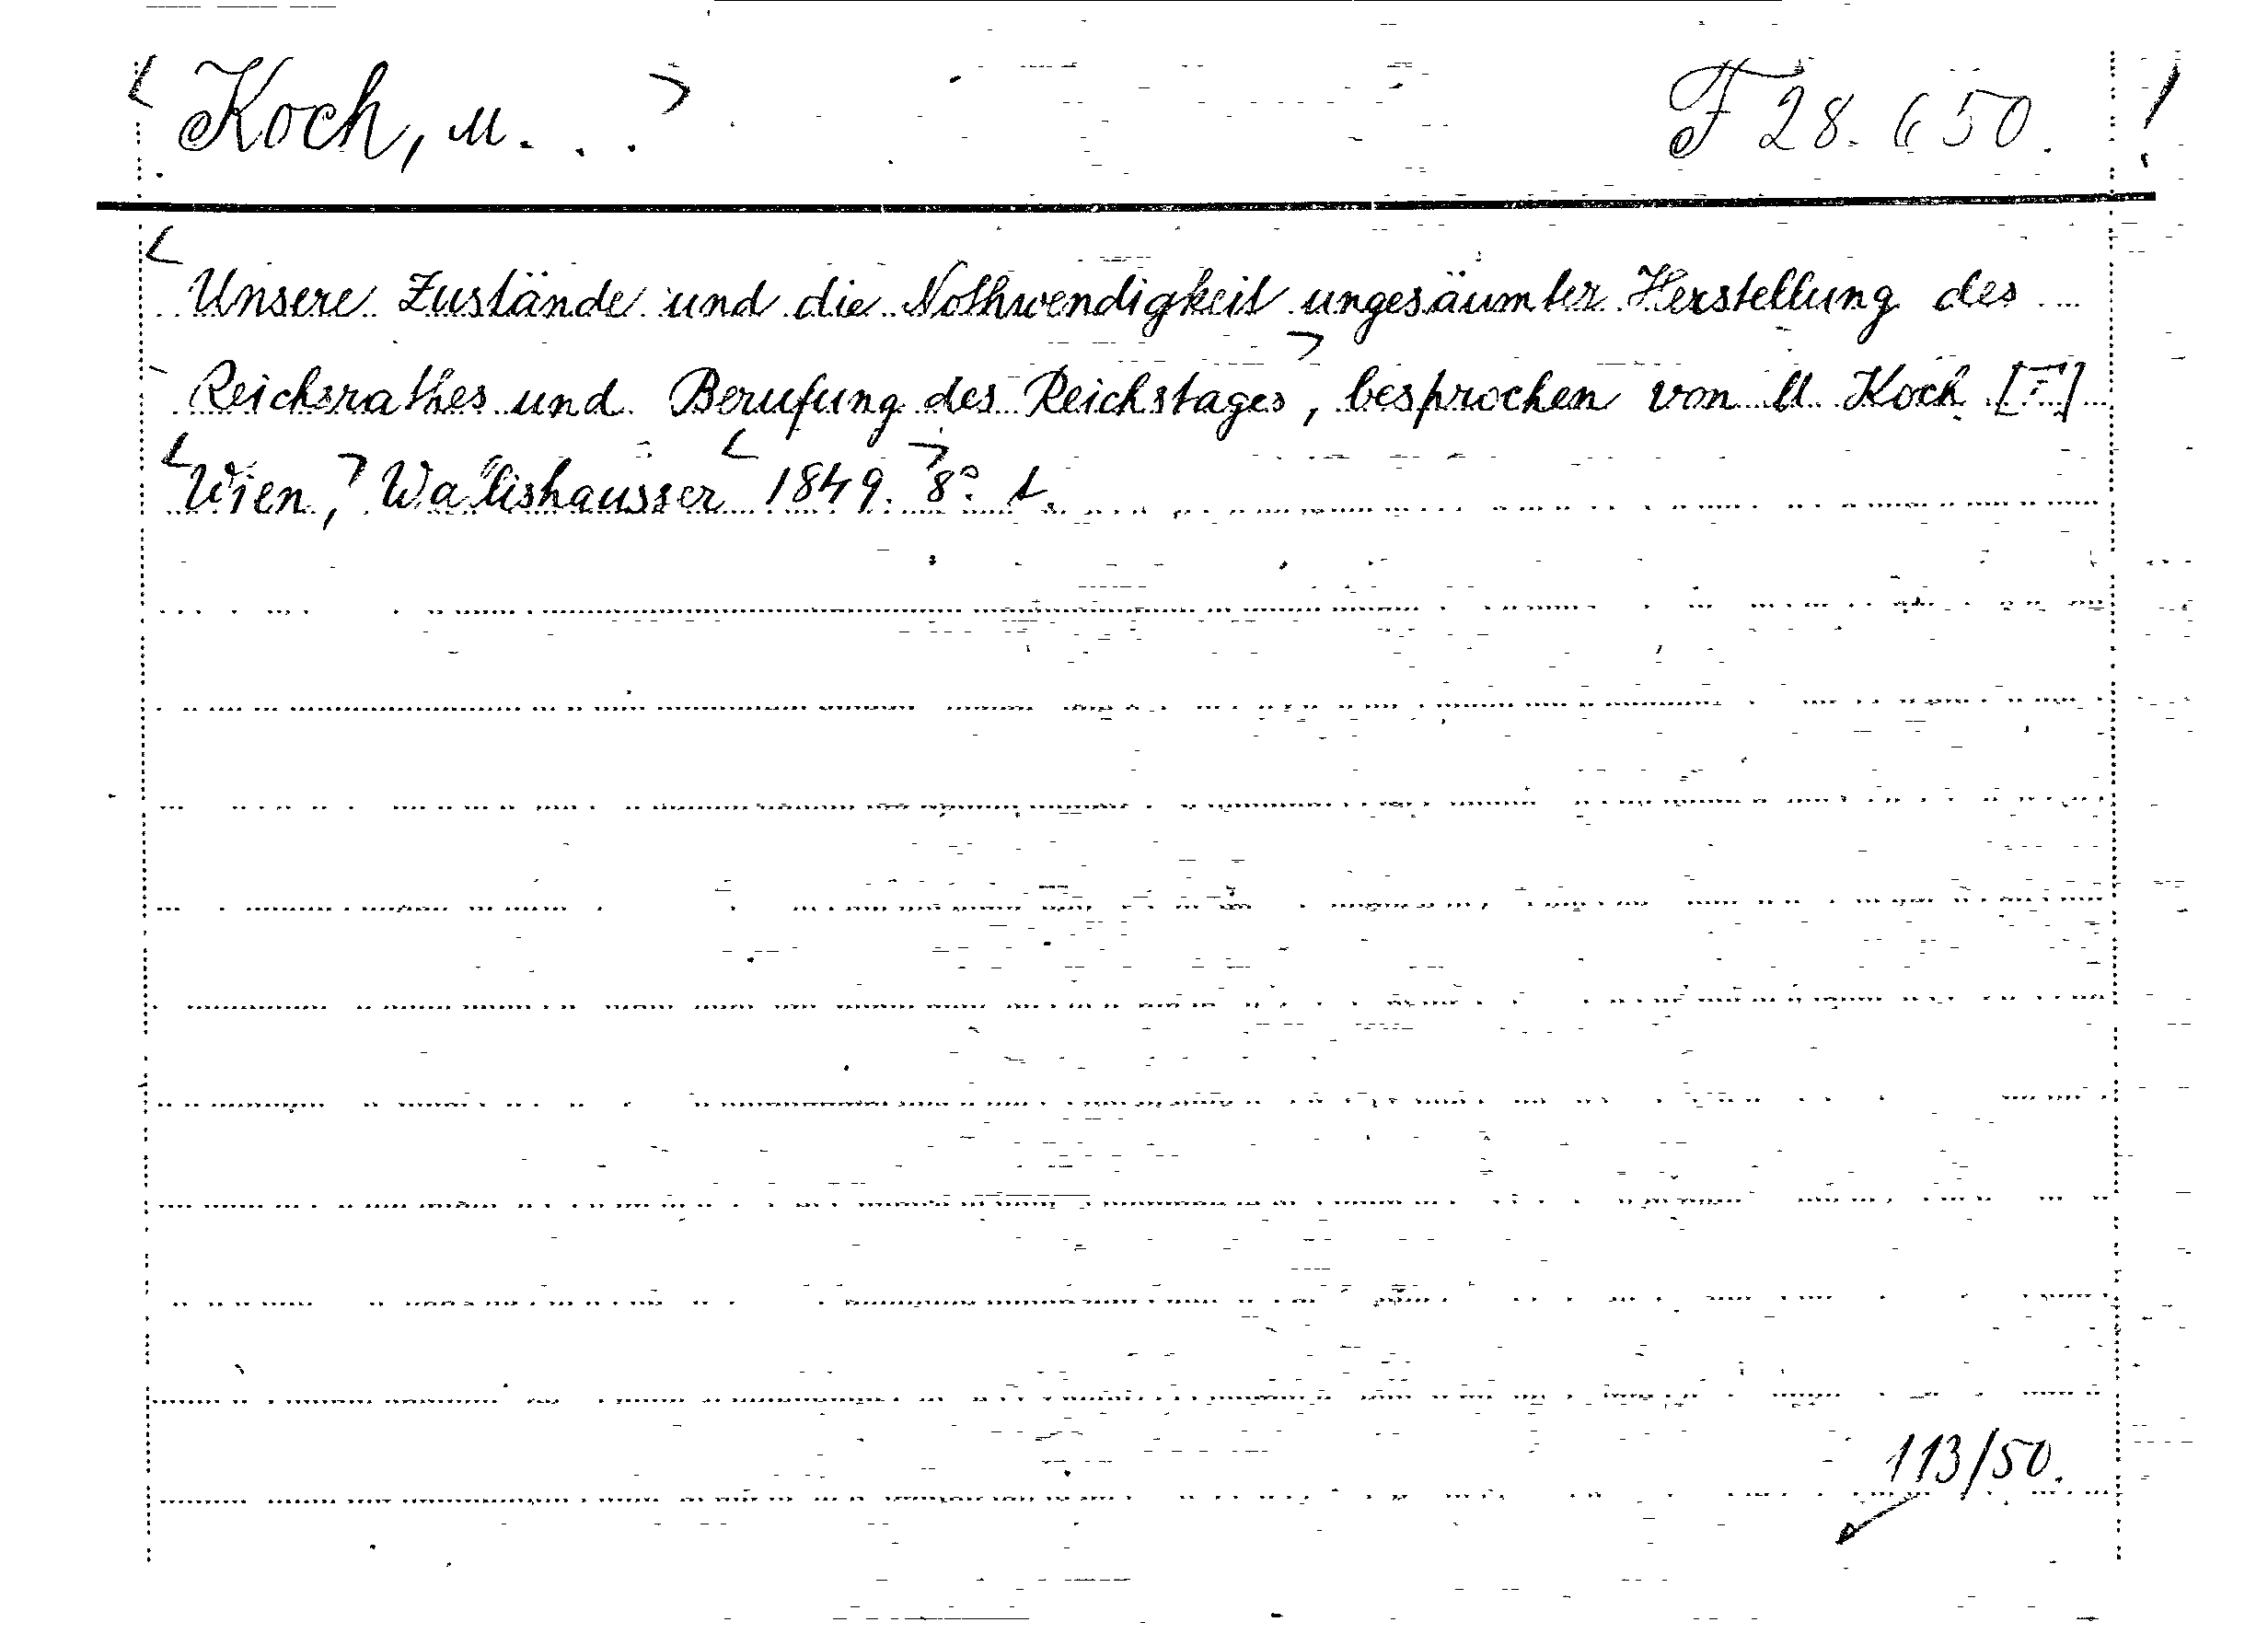 Koch, M... F 28.650.
Unsere Zustände und die Nothwendigkeit ungesäumter Herstellung des
Reichsrathes und Berufung des Reichstages, besprochen von M Koch [F]
Wien, Wallishausser 1849. 8°. 1.
113/50.